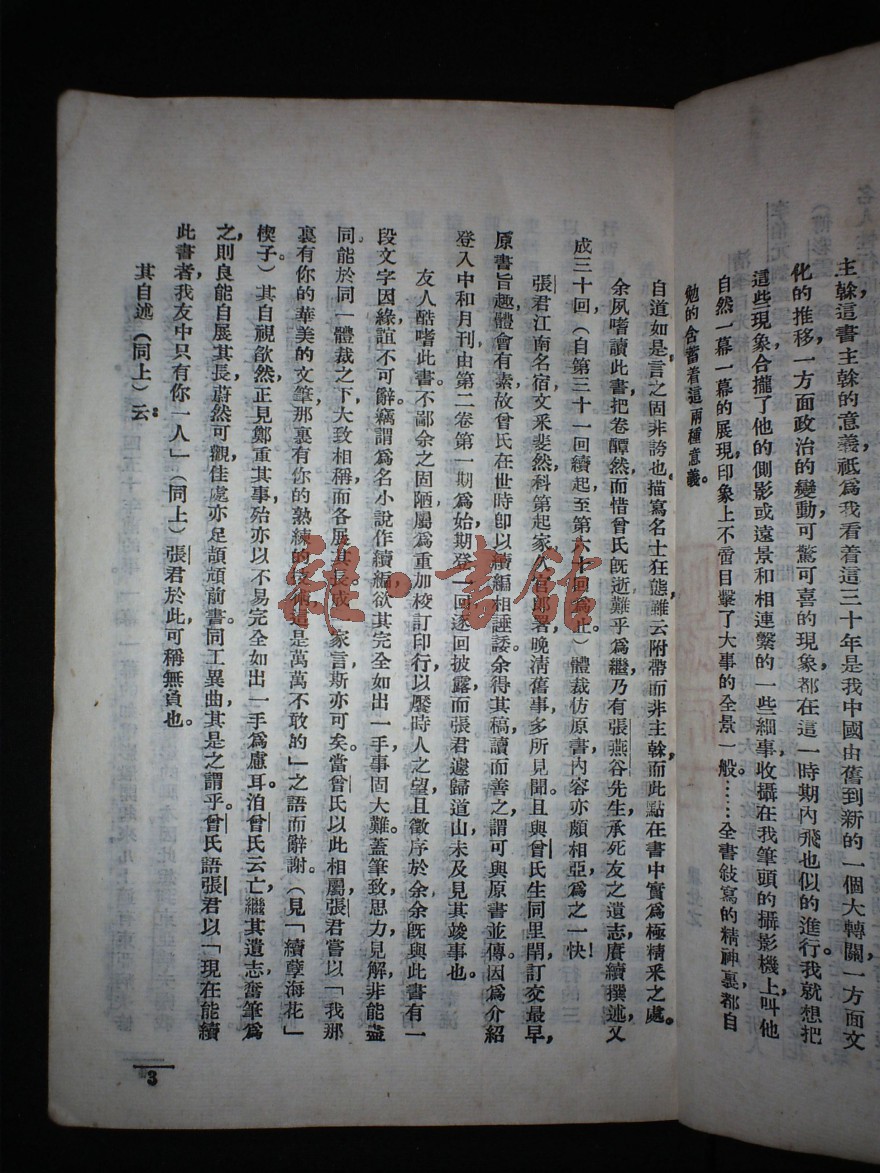 主榦，這書主榦的意義，祇為我看着這三十年，是我中國由舊到新的一個大轉關，一方面文
化的推移，一方面政治的變動，可驚可喜的現象，都在這一時期內飛也似的進行。我就想把
這些現象，合攏了他的側影或遠景和相連繫的一些細事，收攝在我筆頭的攝影機上，叫他
自然一幕一幕的展現，印象上不啻目擊了大事的全景一般。……全書敍寫的精神裏，都自
勉的含蓄着這兩種意義。
自道如是，言之固非誇也。描寫名士狂態，雖云附帶而非主榦，而此點在書中實為極精釆之處。
余夙嗜讀此書，把卷醰然，而惜曾氏旣逝，難乎為繼，乃有張燕谷先生承死友之遺志，賡續撰述，又
成三十回（自第三十一回續起，至第六十回為止。）體裁仿原書，內容亦頗相亞，為之一快！
張君江南名宿，文釆斐然，科第起家，久官郎署，晚清舊事，多所見聞，且與曾氏生同里閈，訂交最早，
原書旨趣，體會有素，故曾氏在世時卽以續編相諈諉。余得其稿，讀而善之，謂可與原書並傳。因為介紹
登入中和月刊，由第二卷第一期為始，期登一回，逐回披露，而張君遽歸道山，未及見其竣事也。
友人酷嗜此書，不鄙余之固陋，屬為重加校訂印行，以饜時人之望，且徵序於余。余旣與此書有一
段文字因緣，誼不可辭。竊謂為名小說作續編，欲其完全如出一手，事固大難。蓋筆致，思力，見解，非能盡
同，能於同一體裁之下，大致相稱，而各展其長，成一家言，斯亦可矣。當曾氏以此相屬，張君嘗以「我那
裏有你的華美的文筆，那裏有你的熟練的技術，這是萬萬不敢的」之語而辭謝。（見「續孽海花」
楔子）其自視欿然，正見鄭重其事，殆亦以不易完全如出一手為慮耳。洎曾氏云亡，繼其遺志，奮筆為
之，則良能自展其長，蔚然可觀，佳處亦足頡頏前書，同工異曲，其是之謂乎。曾氏語張君以「現在能續
此書者，我友中只有你一人」（同上）張君於此，可稱無負也。
其自述（同上）云：
3
龍·書館